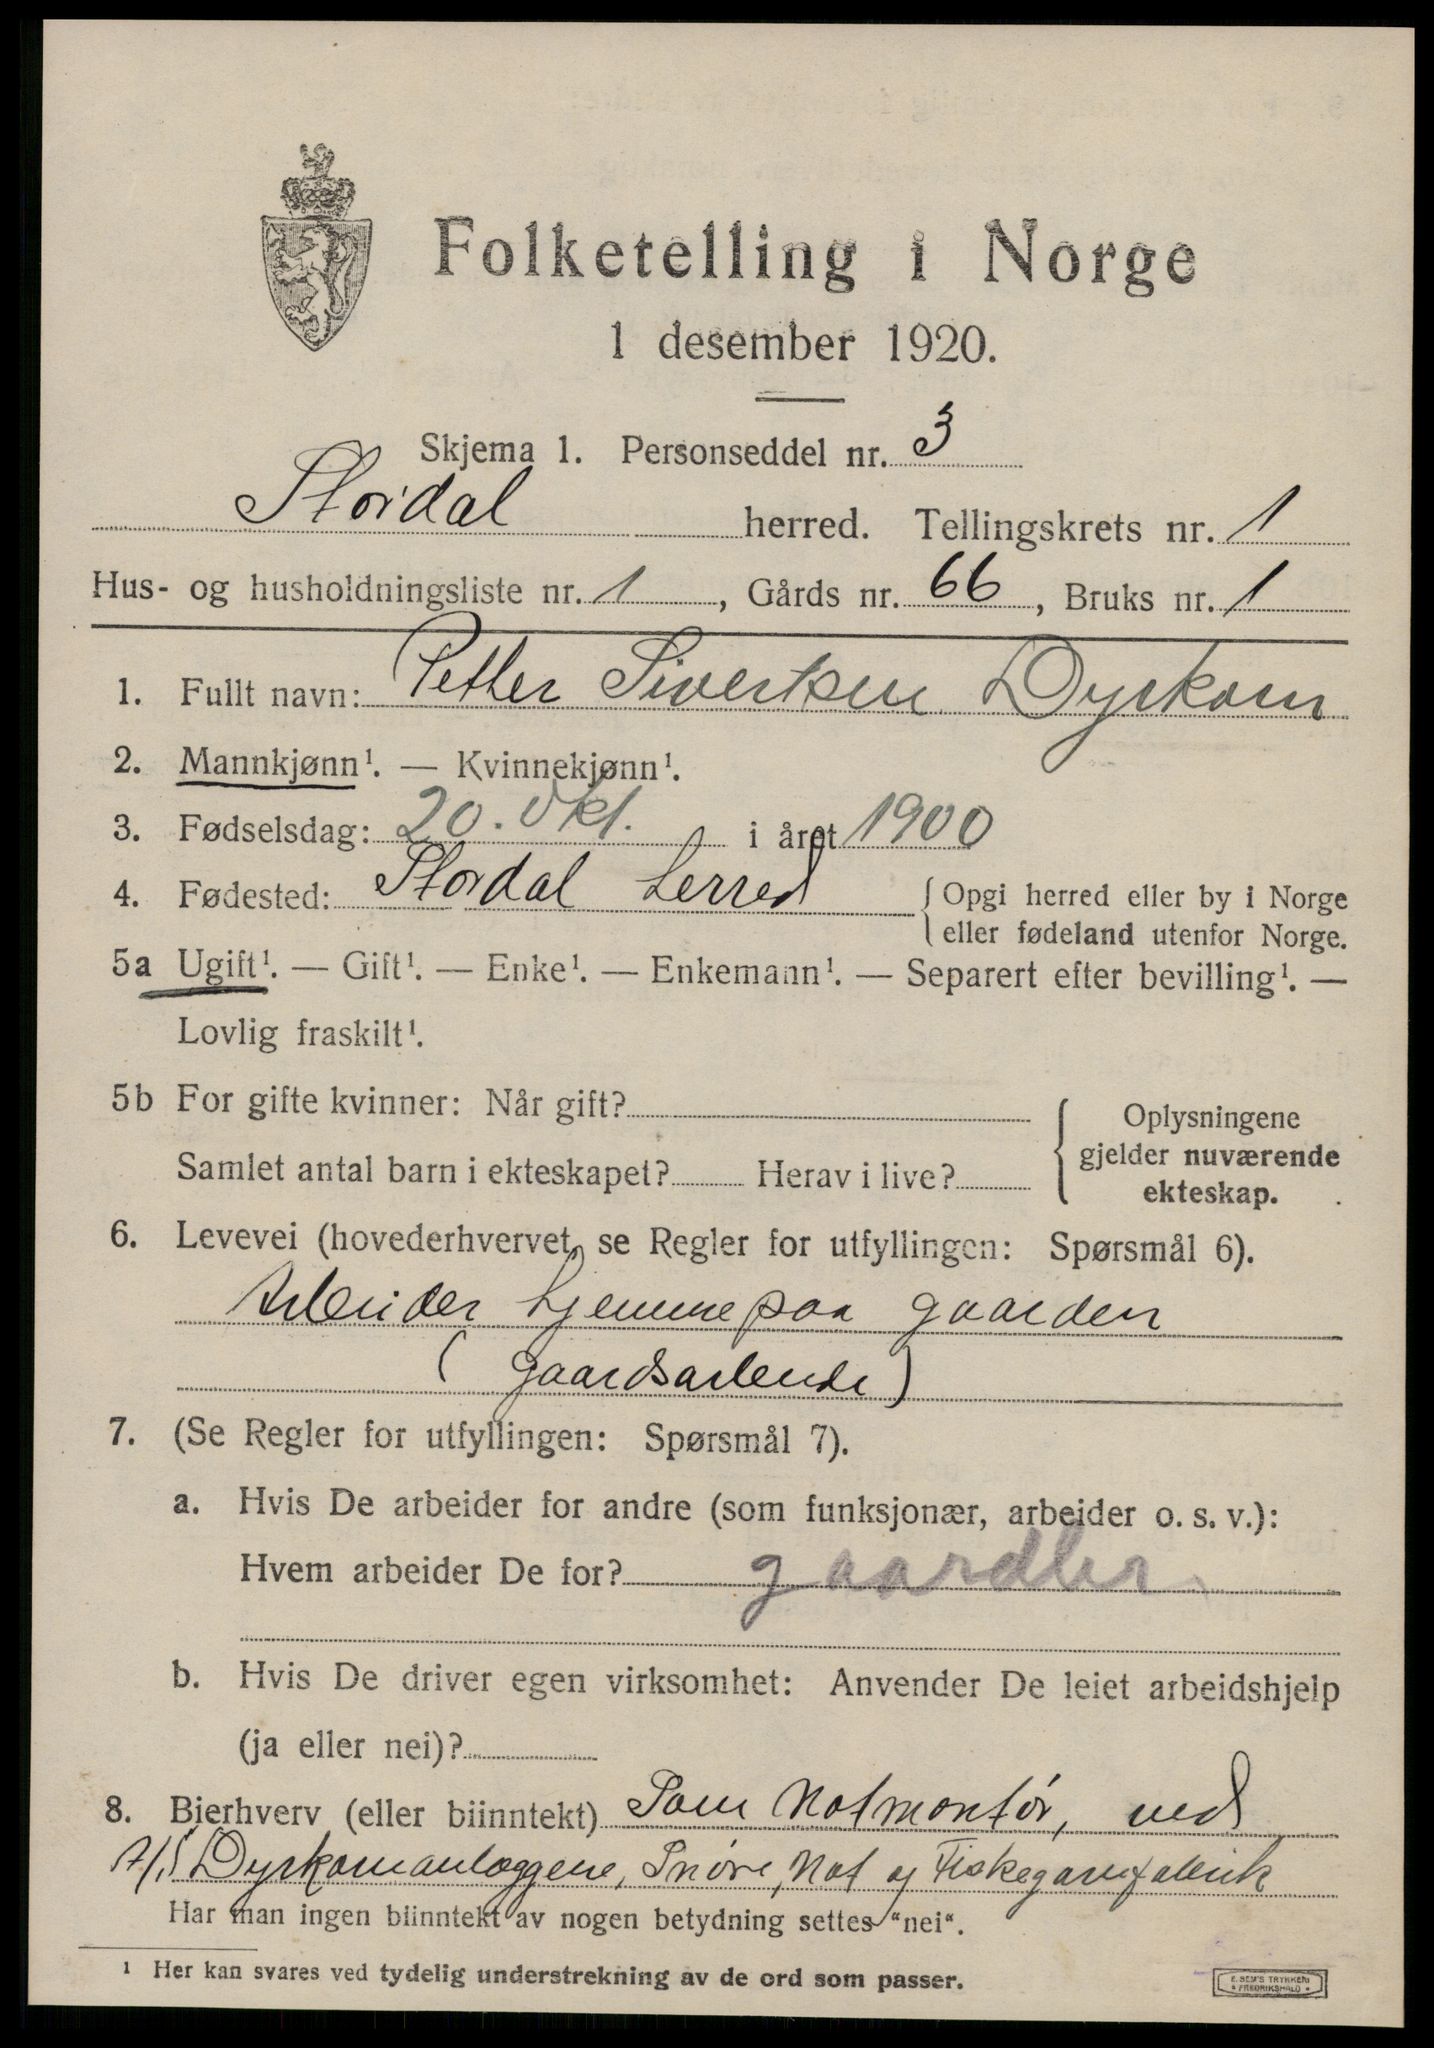 Folketelling i Norge
1 desember 1920.
Skjema 1. Personseddel nr. 3
Stordal herred. Tellingskrets nr. 1
Hus- og husholdningsliste nr. 1, Gårds nr. 66, Bruks nr. 1
1. Fullt navn: Petter Sivertsen Dyrkorn
2. Mannkjønn¹. — Kvinnekjønn¹.
3. Fødselsdag: 20. Okt. i året 1900
4. Fødested: Stordal herred { Opgi herred eller by i Norge
eller fødeland utenfor Norge.
5a Ugift¹. — Gift¹. — Enke¹. — Enkemann¹. — Separert efter bevilling¹. —
Lovlig fraskilt¹.
5b For gifte kvinner: Når gift?
Samlet antal barn i ekteskapet? Herav i live?
{ Oplysningene
gjelder nuværende
ekteskap.
6. Levevei (hovederhvervet, se Regler for utfyllingen: Spørsmål 6).
Arbeider hjemme paa gaarden
(gaardsarbeide)
7. (Se Regler for utfyllingen: Spørsmål 7).
a. Hvis De arbeider for andre (som funksjonær, arbeider o. s. v.):
Hvem arbeider De for?
b. Hvis De driver egen virksomhet: Anvender De leiet arbeidshjelp
(ja eller nei)?
8. Bierhverv (eller biinntekt) Som Notmontør, ved
A/S Dyrkornanlæggene, Snøre, Not og Fiskegarnfabrik
Har man ingen biinntekt av nogen betydning settes "nei".
¹ Her kan svares ved tydelig understrekning av de ord som passer.
E. SEM'S TRYKKERI
FREDRIKSHALD